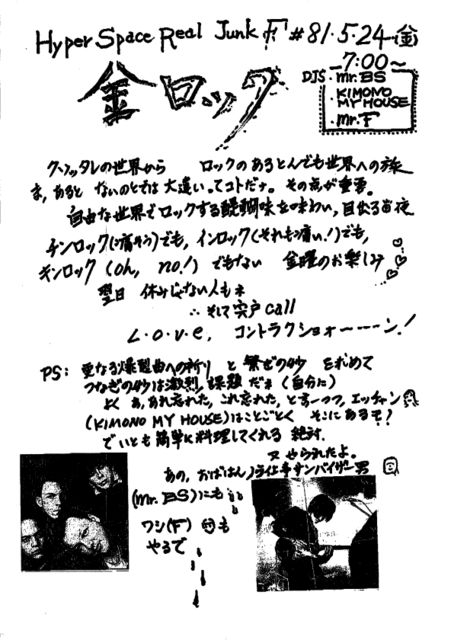 Hyper Space Real Junk F #81・5・24(金)
金ロック
7:00〜
DJS
・Mr.BS
・KIMONO
MY HOUSE
・Mr.F
クソッタレの世界から ロックのあるとんでも世界への旅
ま、あると ないのとでは大違いってコトだナ。その点が重要。
自由な世界でロックする醍醐味を味わい、目出る百夜
チンロック(痛そう)でも、インロック(それも痛い!)でも、
ギンロック (oh, no!) でもない 金曜のお楽しみ
翌日 休みじゃない人もネ
∴ そして宍戸 call
L・o・v・e, コントラクショォーーーン!
PS: 更なる爆裂曲への祈り と 繋ぎの妙 を求めて
つなぎの妙は激烈 課題 だネ (自分に)
よく あ、あれ忘れた、これ忘れた、と言いつつ、エッチャン
(KIMONO MY HOUSE)はことごとく そこにあるぞ?
でいとも簡単に料理してくれる 絶対.
又 やられたよ。
あの、おばはんノライ上手サンバイザー男
(Mr. BS)にも
ワシ(F) も
やるで